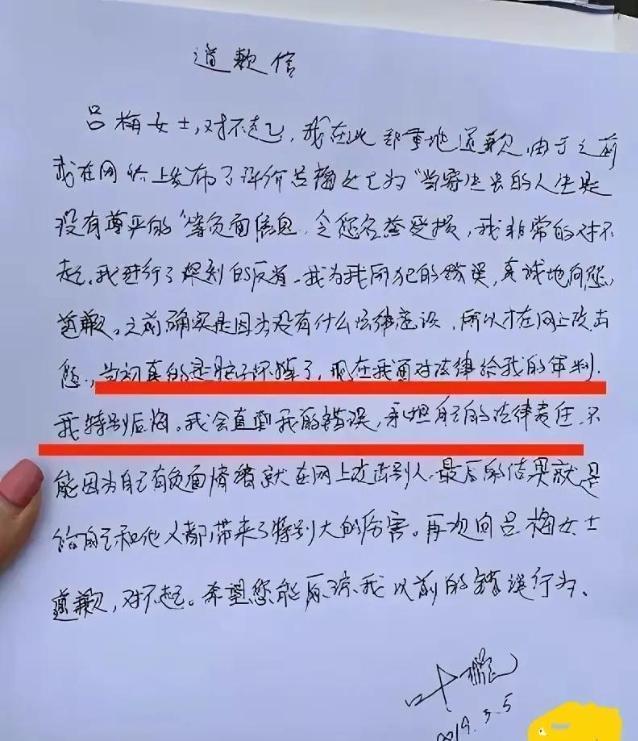 道歉信
吕梅女士,对不起,我在此郑重地道歉,由于之前
我在网络上发布了评价吕梅女士为“当寄生虫的人生是
没有尊严的”等负面信息,令您名誉受损,我非常的对不
起。我进行了深刻的反省。我为我所犯的错误,真诚地向您
道歉。之前确实是因为没有什么法律意识,所以才在网上攻击
您,当初真的是脑子坏掉了,现在我面对法律给我的审判.
我特别后悔。我会直面我的错误,承担自己的法律责任.不
能因为自己有负面情绪就在网上攻击别人.最后的结果就是
给自己和他人都带来了特别大的伤害。再次向吕梅女士
道歉,对不起。希望您能原谅我以前的错误行为.
叶
2019.3.5